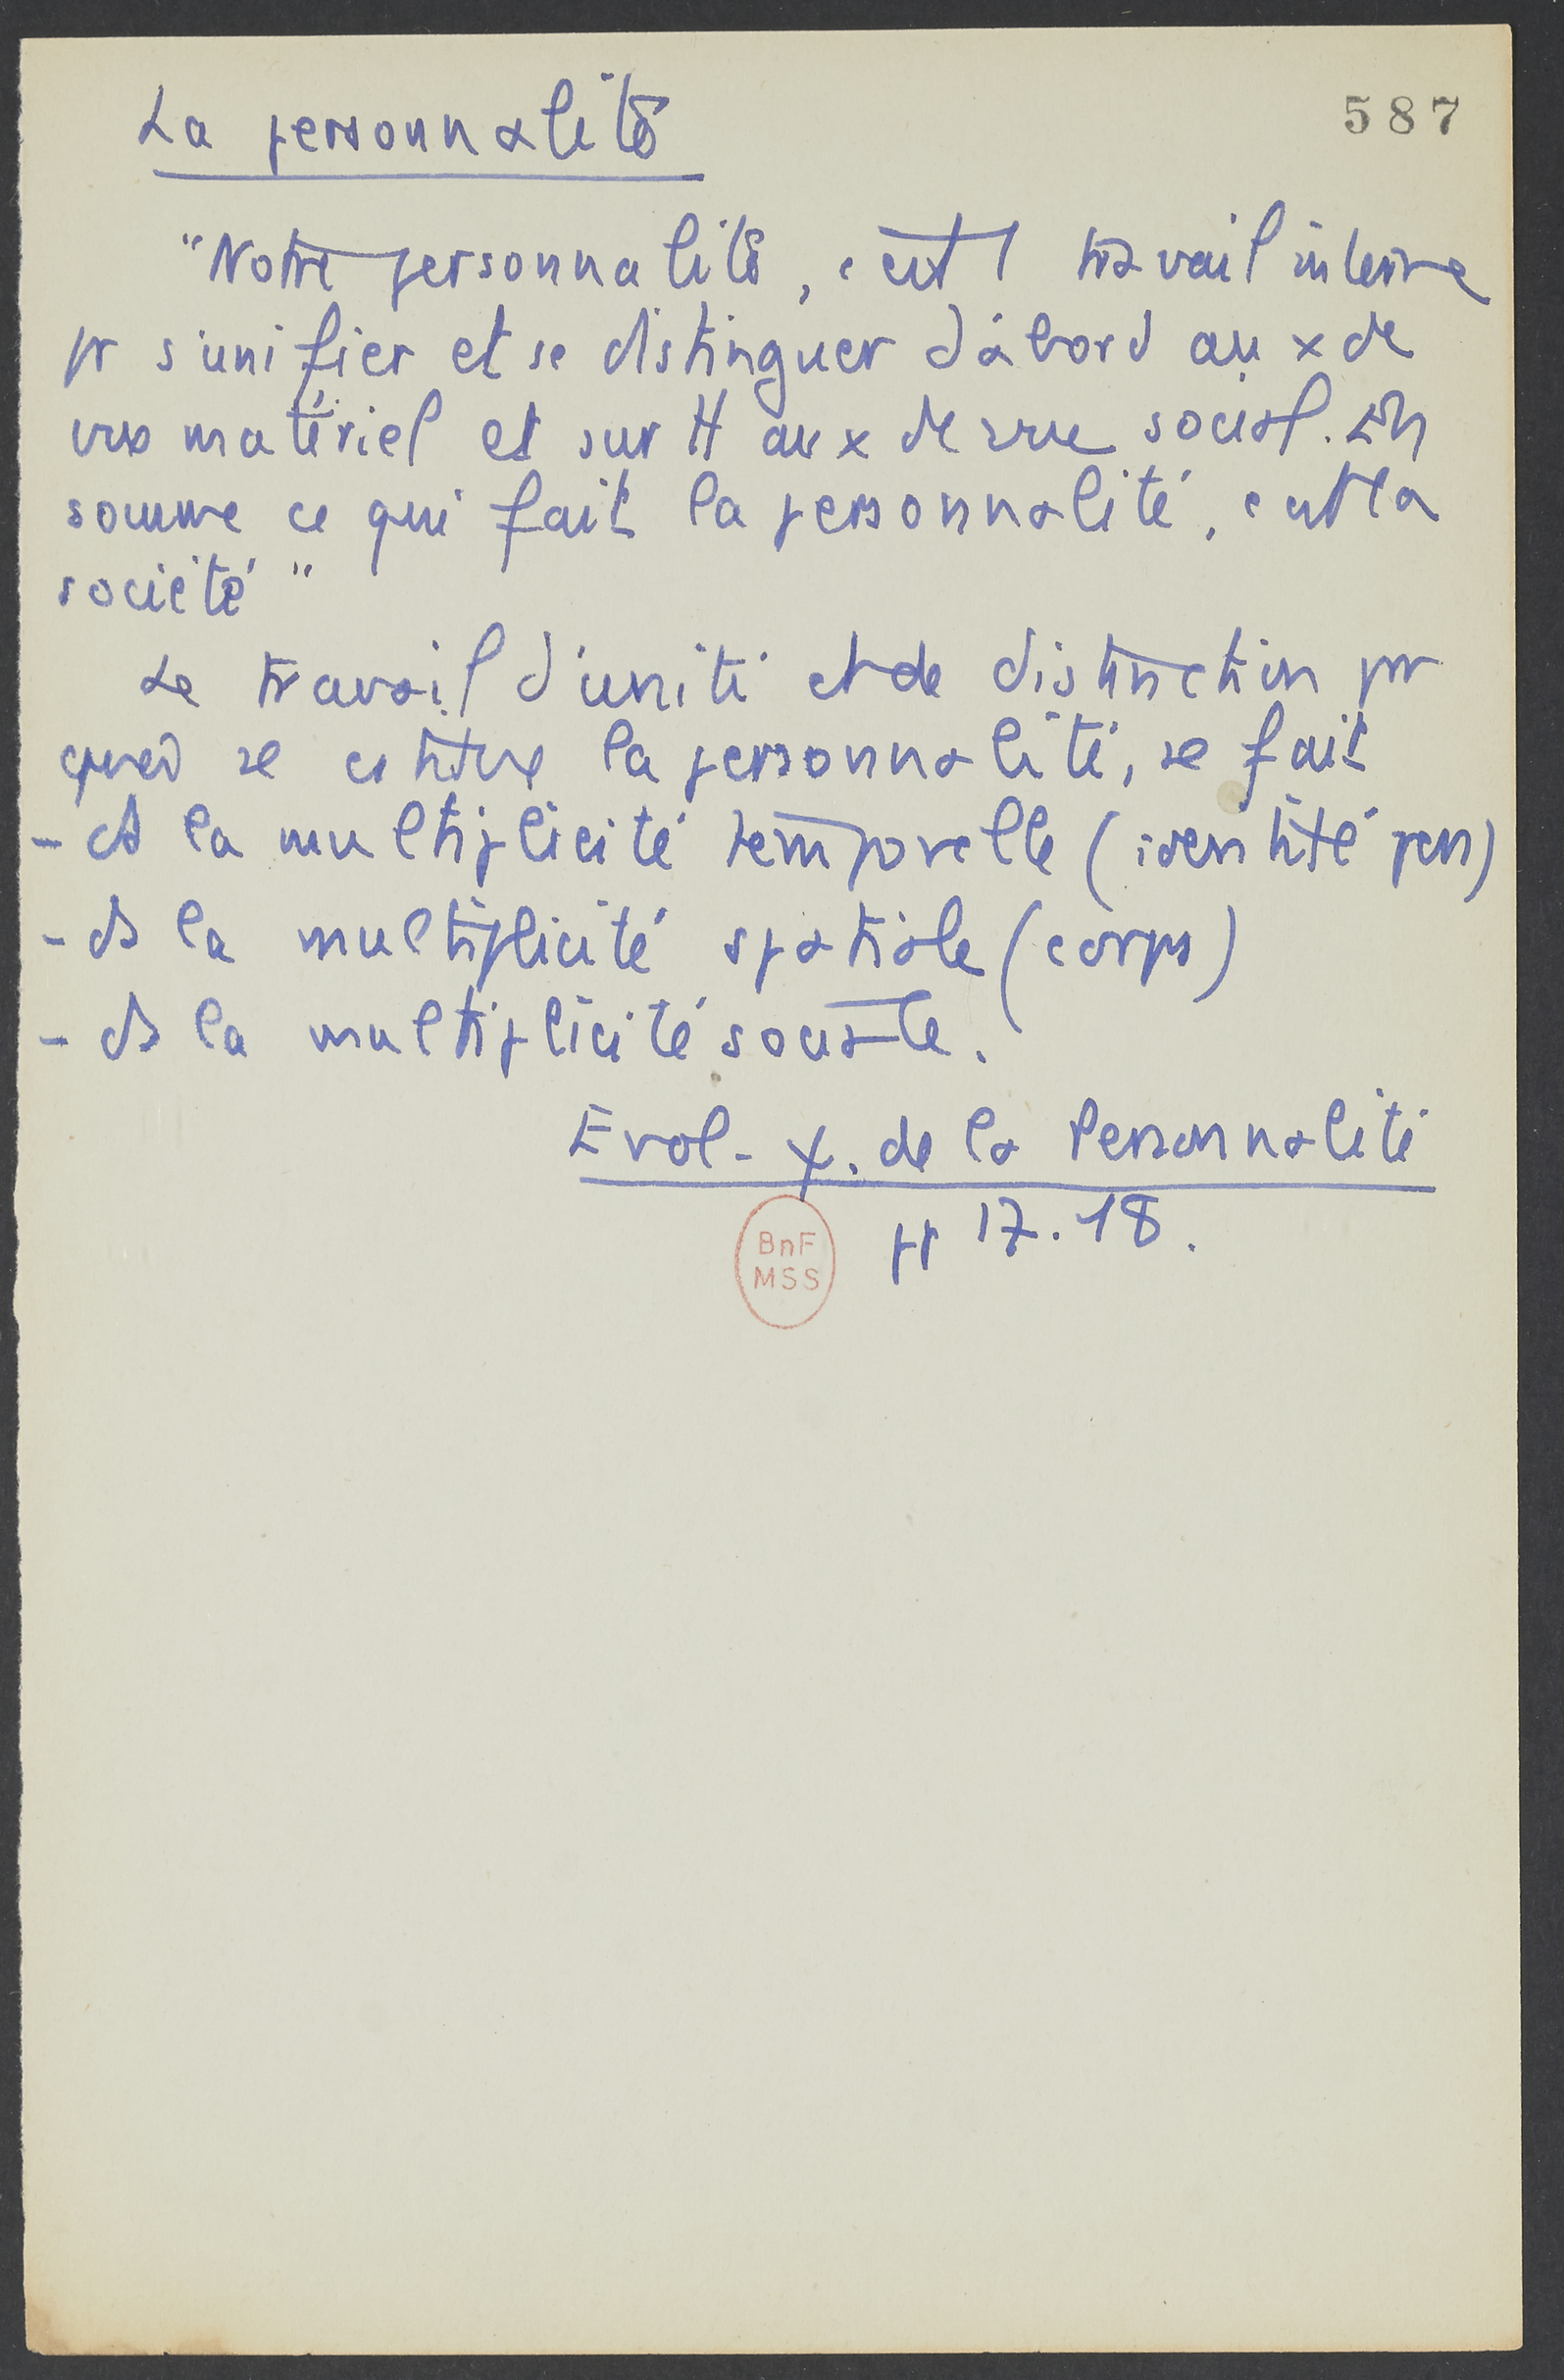 587
La personnalité
"Notre personnalité, c'est 1 travail interne
pr s'unifier et se distinguer d'abord au x de
vue matériel et surtt au x de vue social. En
somme ce qui fait la personnalité, c'est la
société"
Le travail d'unité et de distinction par
quoi se la personnalité, se fait
- ds la multiplicité temporelle (identité pers)
- ds la multiplicité spatiale (corps)
- ds la multiplicité sociale.
Evol. ψ. de la Personnalité
pp 17.18.
BnF
MSS